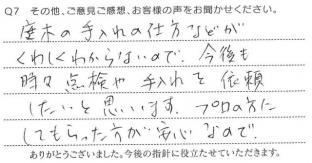 Q7 その他、ご意見ご感想、お客様の声をお聞かせください。
庭木の手入れの仕方などが
くわしくわからないので、今後も
時々点検や手入れを依頼
したいと思います。プロの方に
してもらった方が安心なので。
ありがとうございました。今後の指針に役立たせていただきます。